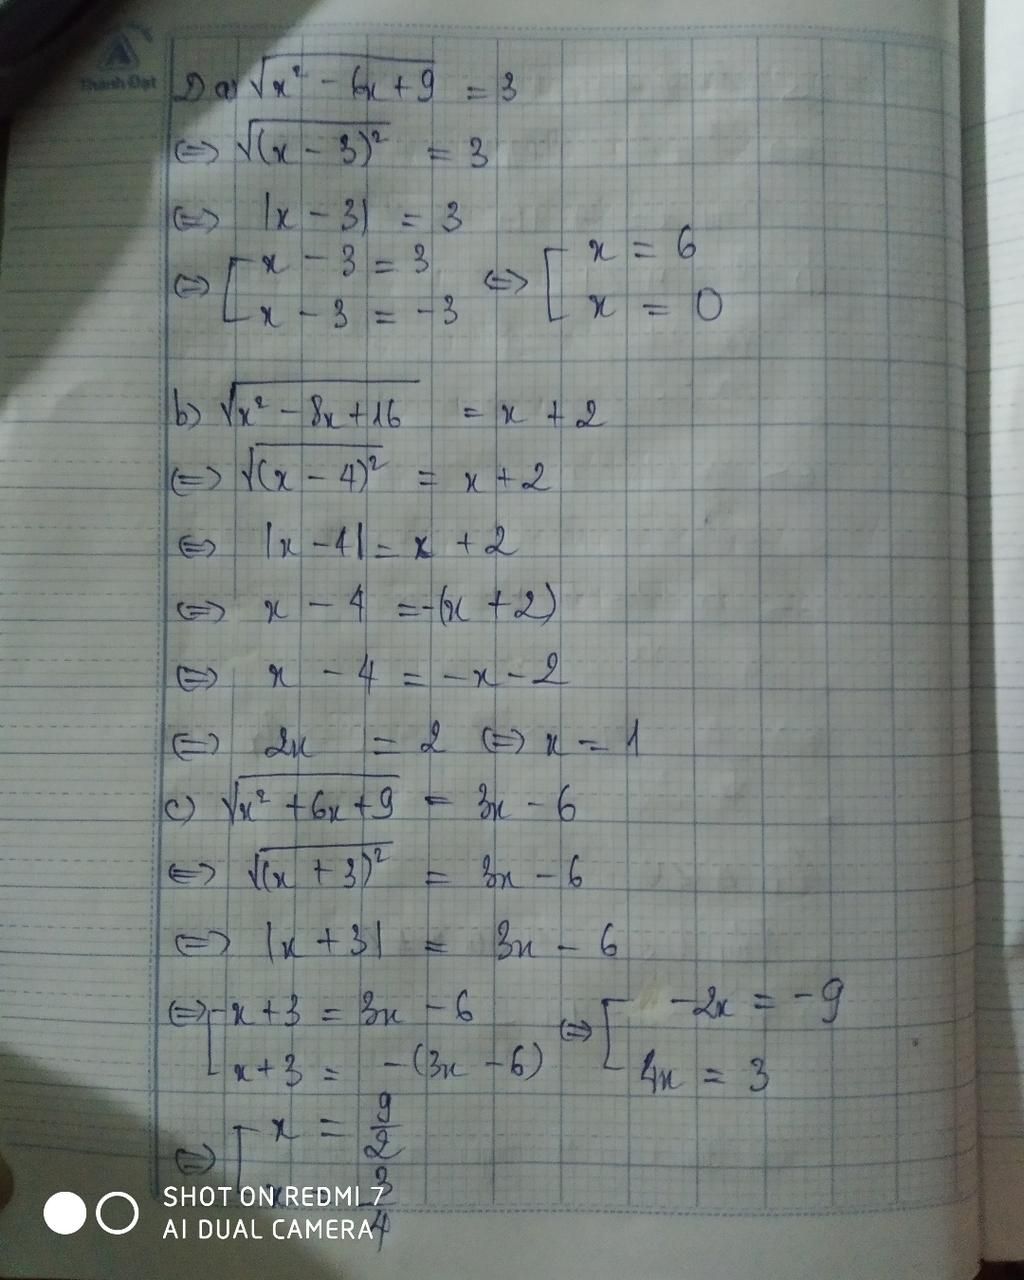 Thành Đạt
1) a) √(x² - 6x + 9) = 3
⇔ √((x - 3)²) = 3
⇔ |x - 3| = 3
⇔ [ x - 3 = 3 ⇔ [ x = 6
x - 3 = -3 x = 0
b) √(x² - 8x + 16) = x + 2
⇔ √((x - 4)²) = x + 2
⇔ |x - 4| = x + 2
⇔ x - 4 = -(x + 2)
⇔ x - 4 = -x - 2
⇔ 2x = 2 ⇔ x = 1
c) √(x² + 6x + 9) = 3x - 6
⇔ √((x + 3)²) = 3x - 6
⇔ |x + 3| = 3x - 6
⇔ [ x + 3 = 3x - 6 ⇔ [ -2x = -9
x + 3 = -(3x - 6) 4x = 3
⇔ [ x = 9/2
3/4
SHOT ON REDMI 7
AI DUAL CAMERA